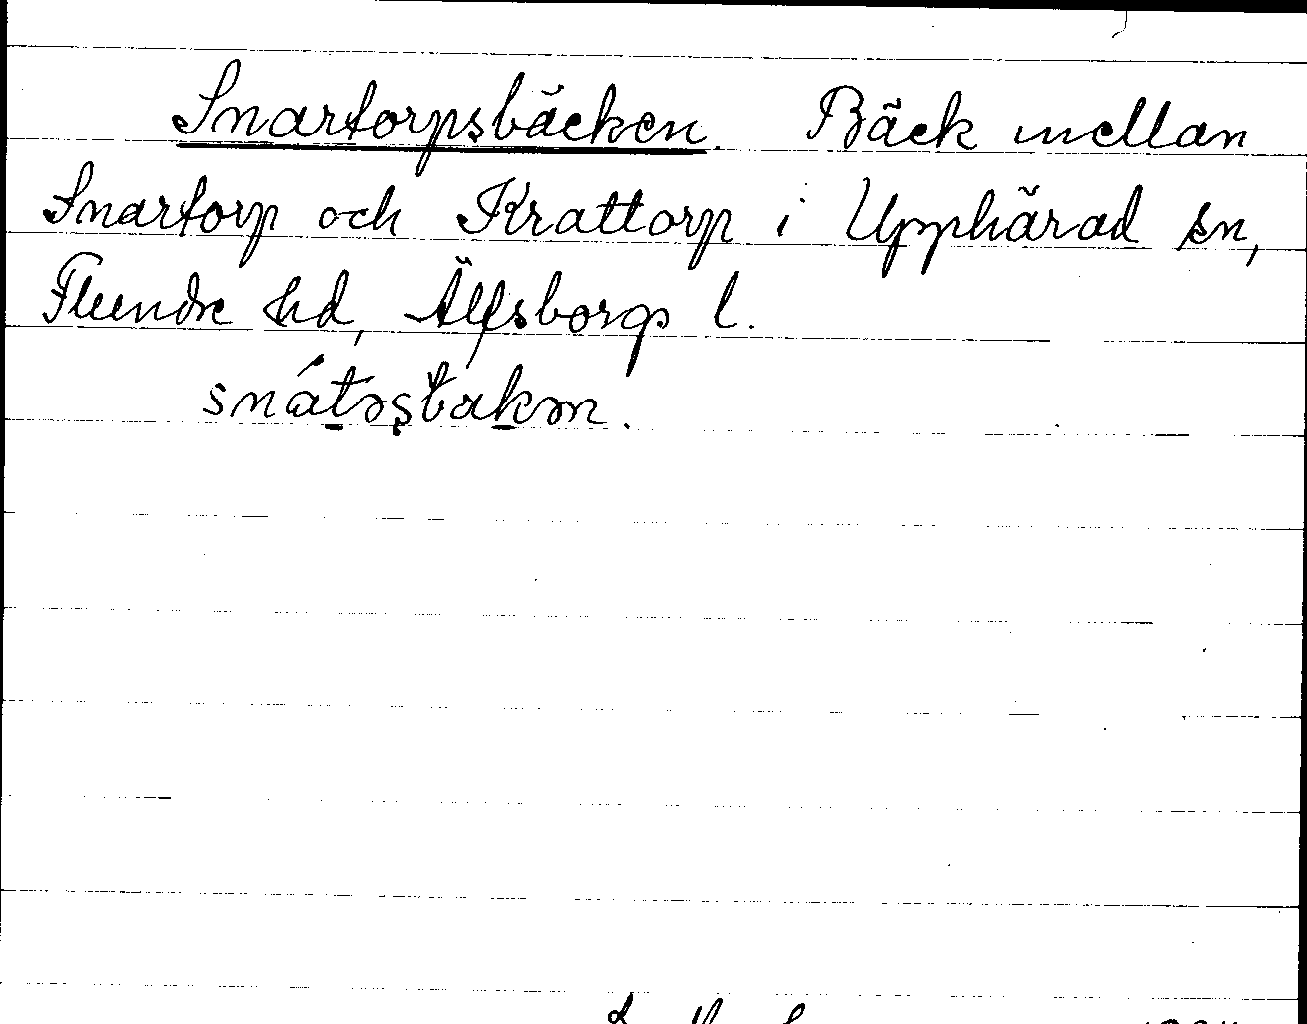 Snartorpsbäcken. Bäck mellan
Snartorp och Krattorp i Upphärad sn,
Flundre hd, Älfsborgs l.